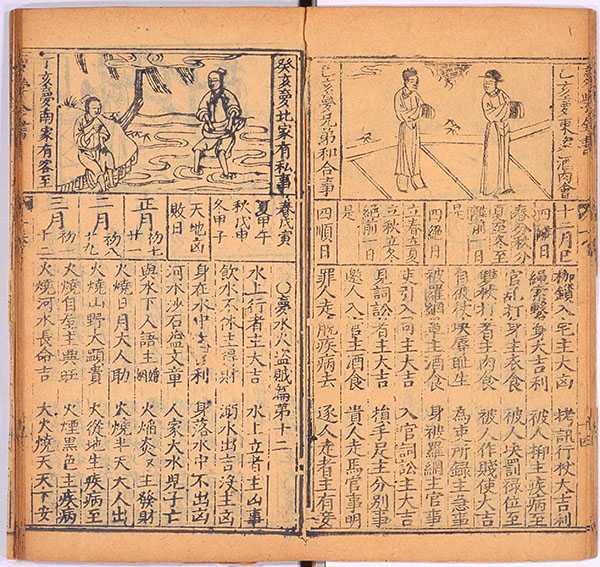 乙亥夢東家酒肉會
己亥夢兄弟和合事
十二月巳
四離日
春分秋分
夏至冬至
離前一日
是
四絕日
立春立夏
立秋立冬
絕前一日
是
四順日
枷鎖入宅主大凶 拷訊行杖大吉利
繩索繫身大吉利 被人枷主疾病至
打身主衣食 被人決罰祿位至
雙杖打者主肉食 被人作賊使大吉
自被杖決辱恥生 為吏所錄主急事
被羅網主酒食 身被羅網主官事
吏引入司主大吉 入官詞訟主大吉
見詞訟者主大吉 指手足主分別事
邀人入主酒食 貴人走馬官事明
罪人走脫疾病去 逐人走者主有妾
癸亥夢北家有私事
丁亥夢南家有客至
春戊寅
夏甲午
秋戊申
冬甲子
天地凶
敗日
正月 初七
二月 初八 十九
三月 初一 十二
○夢水火盜賊篇第十二
水上行者主大吉 水上立者主凶事
飲水不休主得財 溺水出吉沒主凶
身在水中主利 身落水中不出凶
河水沙石益文章 人家大水兒子亡
與水下人語主婚姻 火焰炎炎主發財
火燒日月大人助 火燒半天大人出
火燒山野大顯貴 火從地生疾病至
火燒自屋主興旺 火煙黑色主疾病
火燒河水長命吉 大火燒天天下安